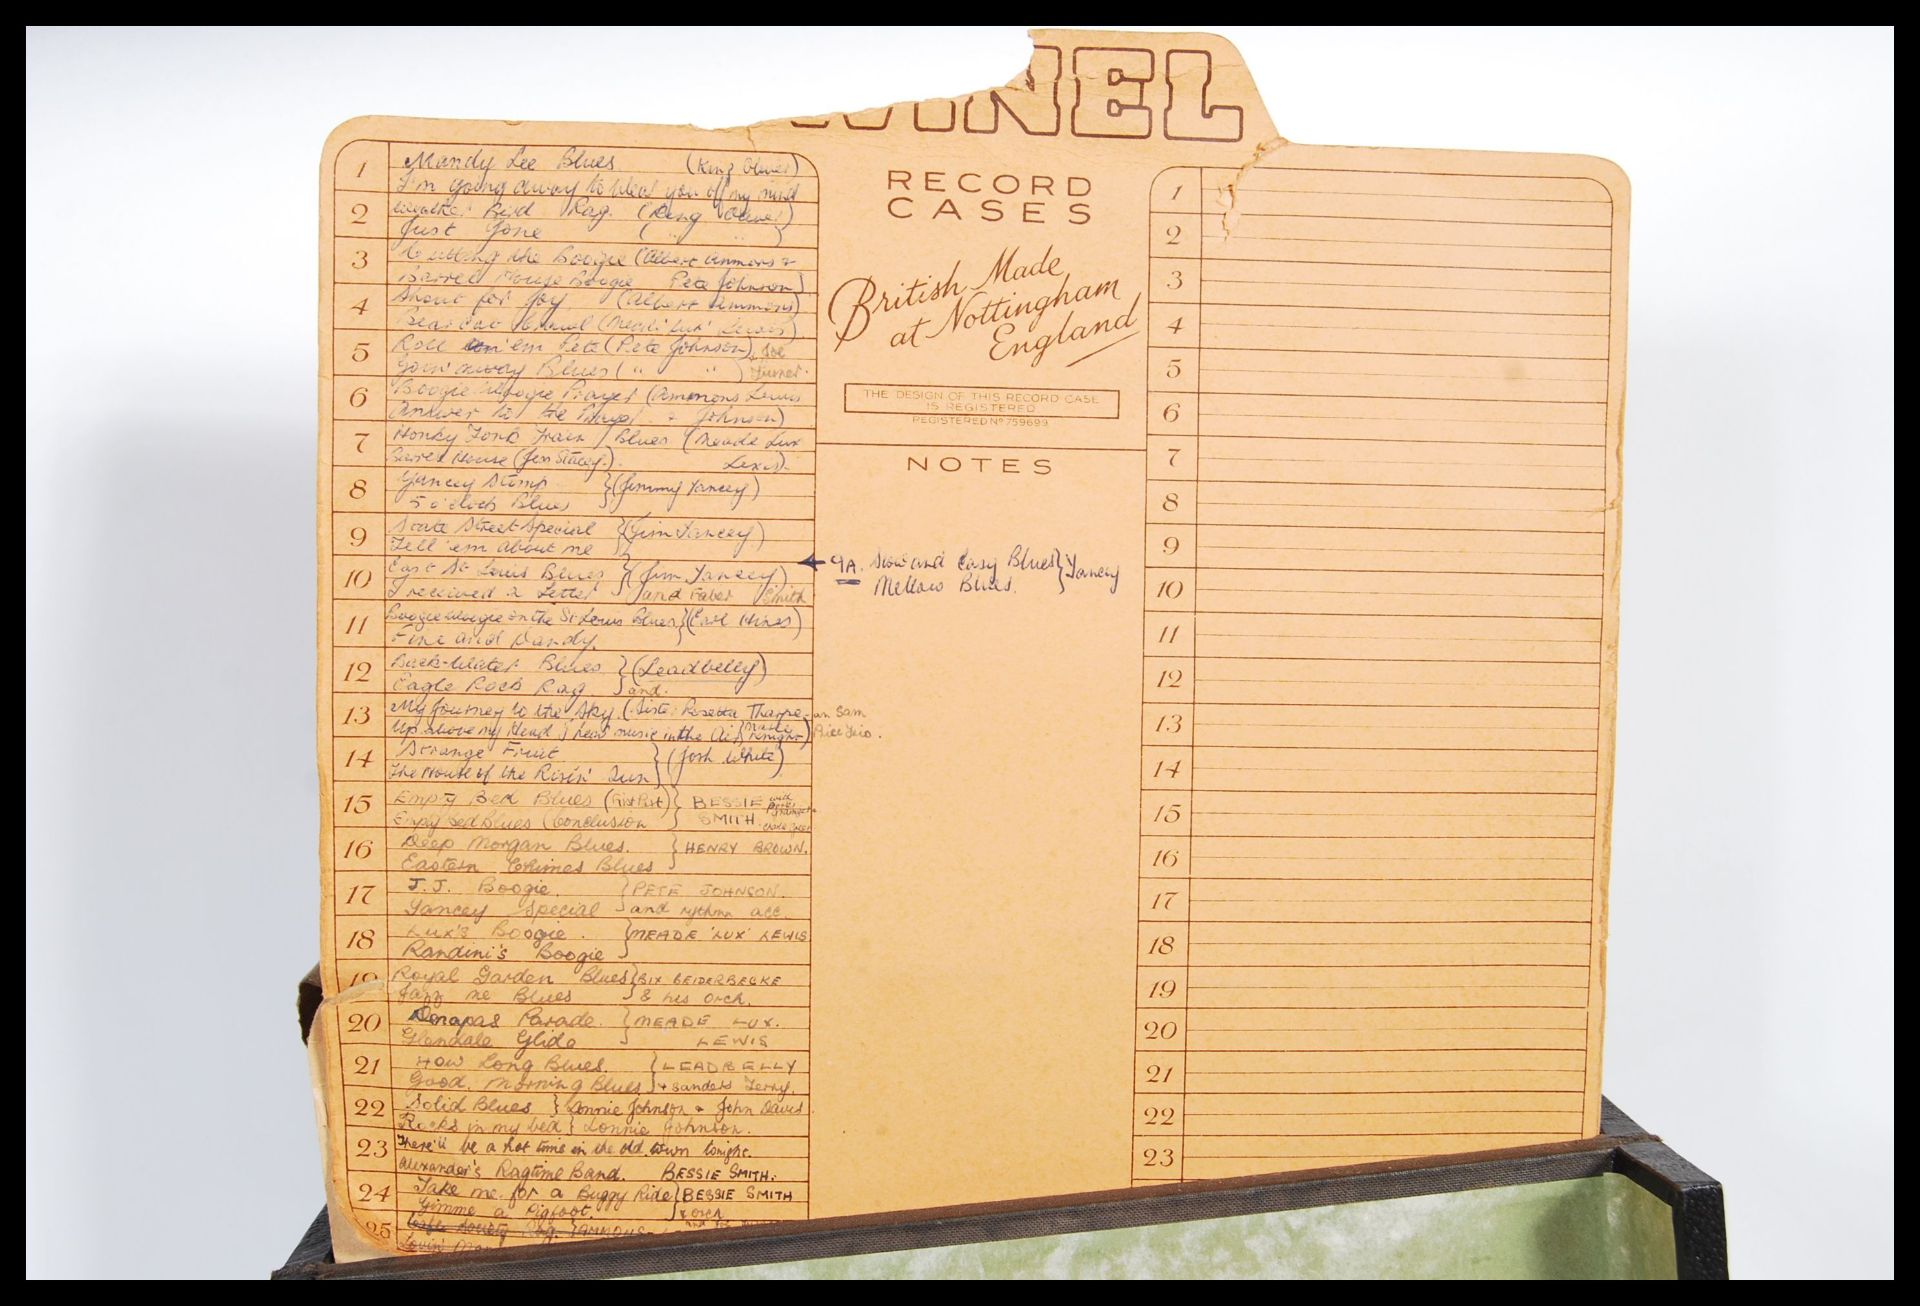 WINEL
RECORD
CASES
British Made
at Nottingham
England
THE DESIGN OF THIS RECORD CASE
IS REGISTERED
REGISTERED Nº 759699
NOTES
9A. Slow and Easy Blues } Yancey
Mellow Blues.
1 Mandy Lee Blues (King Oliver)
I'm going away to wear you off my mind
2 Bird Rag. (King Oliver)
Just Gone ( " " )
3 Cutting the Boogie (Albert Ammons &
Barrel House Boogie Pete Johnson)
4 Shout for Joy (Albert Ammons)
Bear Cat Crawl (Meade 'Lux' Lewis)
5 Roll 'em Pete (Pete Johnson), Joe
Goin' away Blues ( " " ) Turner.
6 Boogie Woogie Prayer (Ammons Lewis
Answer to the & Johnson)
7 Honky Tonk Train Blues (Meade Lux
Barrel House (Jess Stacey). Lewis).
8 Yancey Stomp } (Jimmy Yancey)
5 o'clock Blues
9 State Street Special } (Jim Yancey)
Tell 'em about me
10 East St Louis Blues } (Jim Yancey)
I received a Letter and Faber Smith
11 Boogie Woogie on the St. Louis Blues } (Earl Hines)
Fine and Dandy.
12 Back-Water Blues } (Leadbelly)
Eagle Rock Rag. and.
13 My Journey to the Sky. (Sister Rosetta Tharpe - Sam
Up above my Head I hear music in the Air (Marie Knight) Price Trio.
14 Strange Fruit } (Josh White)
The House of the Risin' Sun
15 Empty Bed Blues (First Part) } BESSIE with
Empty Bed Blues (Conclusion SMITH.
16 Deep Morgan Blues. } HENRY BROWN.
Eastern Chimes Blues
17 J.J. Boogie. } PETE JOHNSON.
Yancey Special and rythmn acc.
18 Lux's Boogie. } MEADE 'LUX' LEWIS
Randini's Boogie
19 Royal Garden Blues } BIX BEIDERBECKE
Jazz me Blues & his Orch.
20 Denapas Parade. } MEADE LUX.
Glendale Glide LEWIS
21 How Long Blues. } LEADBELLY
Good Morning Blues + Sanders Terry.
22 Solid Blues } Lonnie Johnson + John Davis.
Rocks in my bed } Lonnie Johnson.
23 There'll be a hot time in the old town tonight.
Alexander's Ragtime Band. BESSIE SMITH.
24 Take me for a Buggy Ride } BESSIE SMITH
Gimme a Pigfoot & orch
25 Cafe Society Rag. } AMMONS
Lovin' Man
1
2
3
4
5
6
7
8
9
10
11
12
13
14
15
16
17
18
19
20
21
22
23